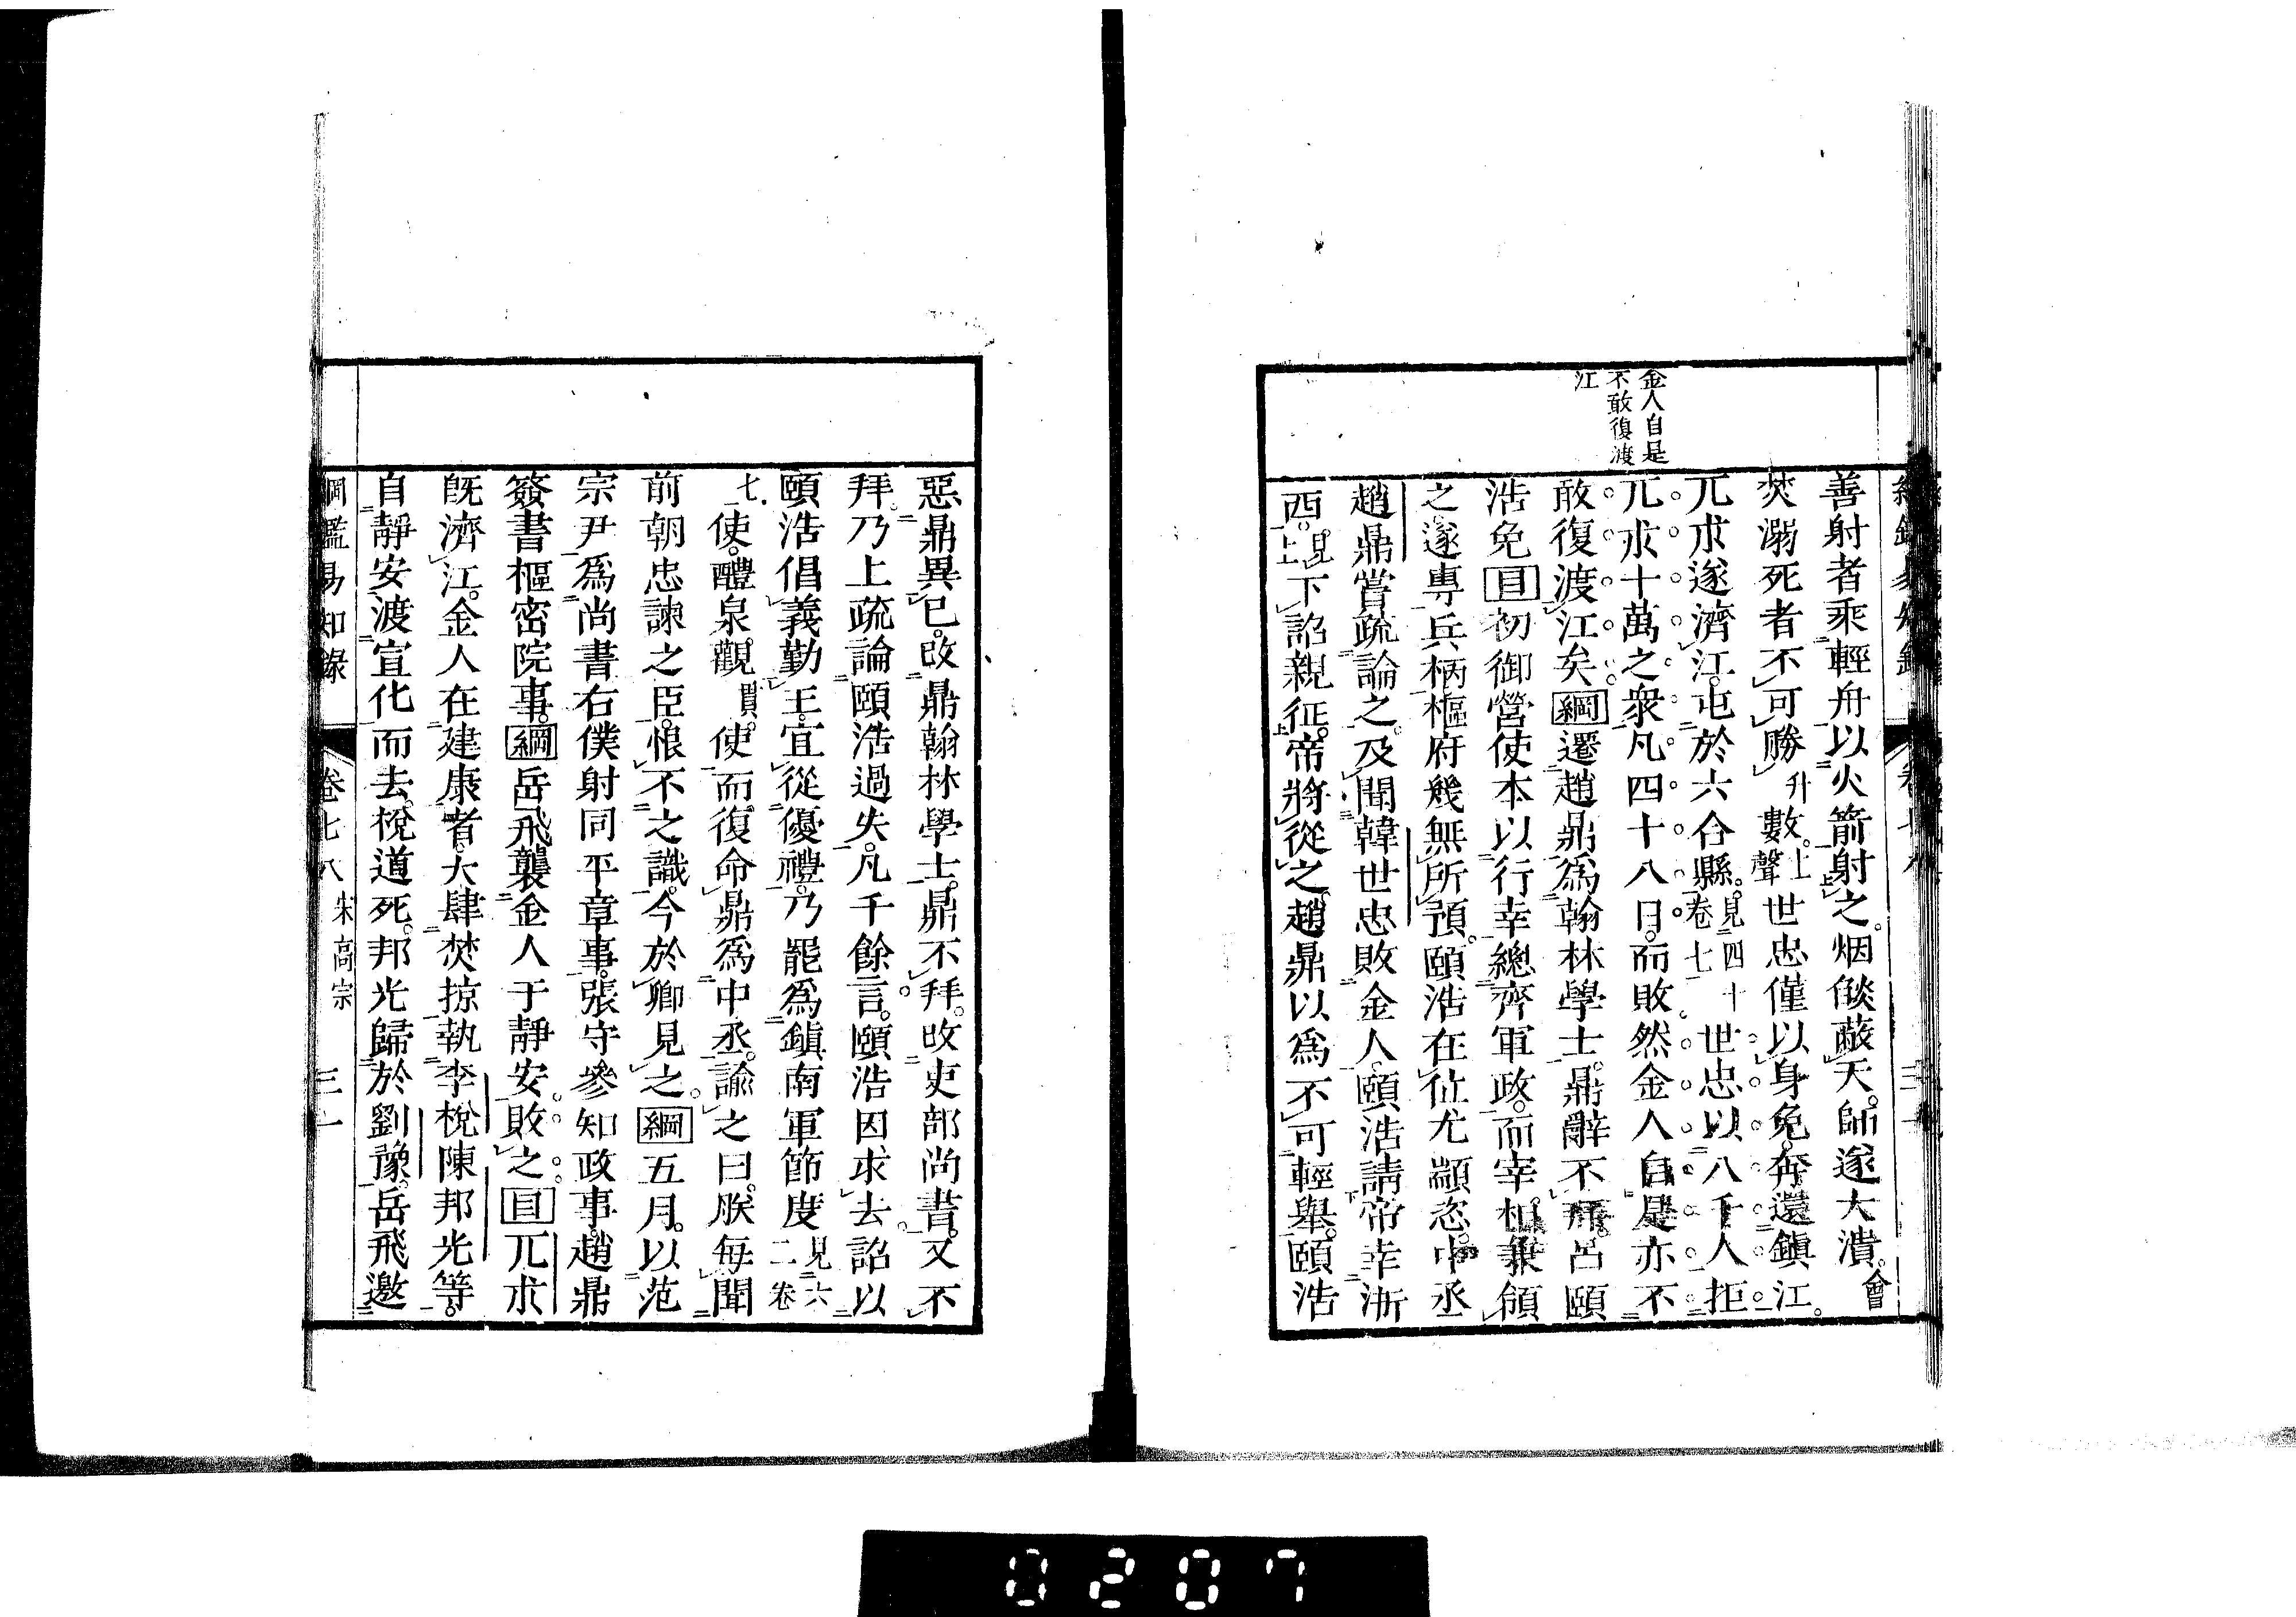 金人自是
不敢復渡
江
善射者乘輕舟以火箭射之。烟燄蔽天。師遂大潰。會
焚溺死者不可勝升數。上聲世忠僅以身免。奔還鎭江。
兀朮遂濟江。屯於六合縣。見四十卷七世忠以八千人拒
兀朮十萬之衆。凡四十八日。而敗然金人自是亦不
敢復渡江矣。綱遷趙鼎爲翰林學士。鼎辭不拜。呂頤
浩免目初御營使本以行幸總齊軍政。而宰相兼領
之。遂專兵柄。樞府幾無所預。頤浩在位尤顓恣。中丞
趙鼎嘗疏論之。及聞韓世忠敗金人。頤浩請帝幸浙
西。見上下詔親征。帝將從之。趙鼎以爲不可輕舉。頤浩
惡鼎異已。改鼎翰林學士。鼎不拜。改吏部尚書。又不
拜。乃上疏論頤浩過失。凡千餘言。頤浩因求去。詔以
頤浩倡義勤王。宜從優禮。乃罷爲鎭南軍節度見六二卷
七使。醴泉。觀貫。使而復命鼎爲中丞。諭之曰。朕每聞
前朝忠諫之臣。恨不之識。今於卿見之。綱五月。以范
宗尹爲尚書右僕射同平章事。張守參知政事。趙鼎
簽書樞密院事。綱岳飛襲金人于靜安。敗之。目兀朮
旣濟江。金人在建康者。大肆焚掠執李梲陳邦光等。
自靜安渡宣化而去。梲道死。邦光歸於劉豫。岳飛邀
綱鑑易知錄 卷七八 宋高宗 三十一